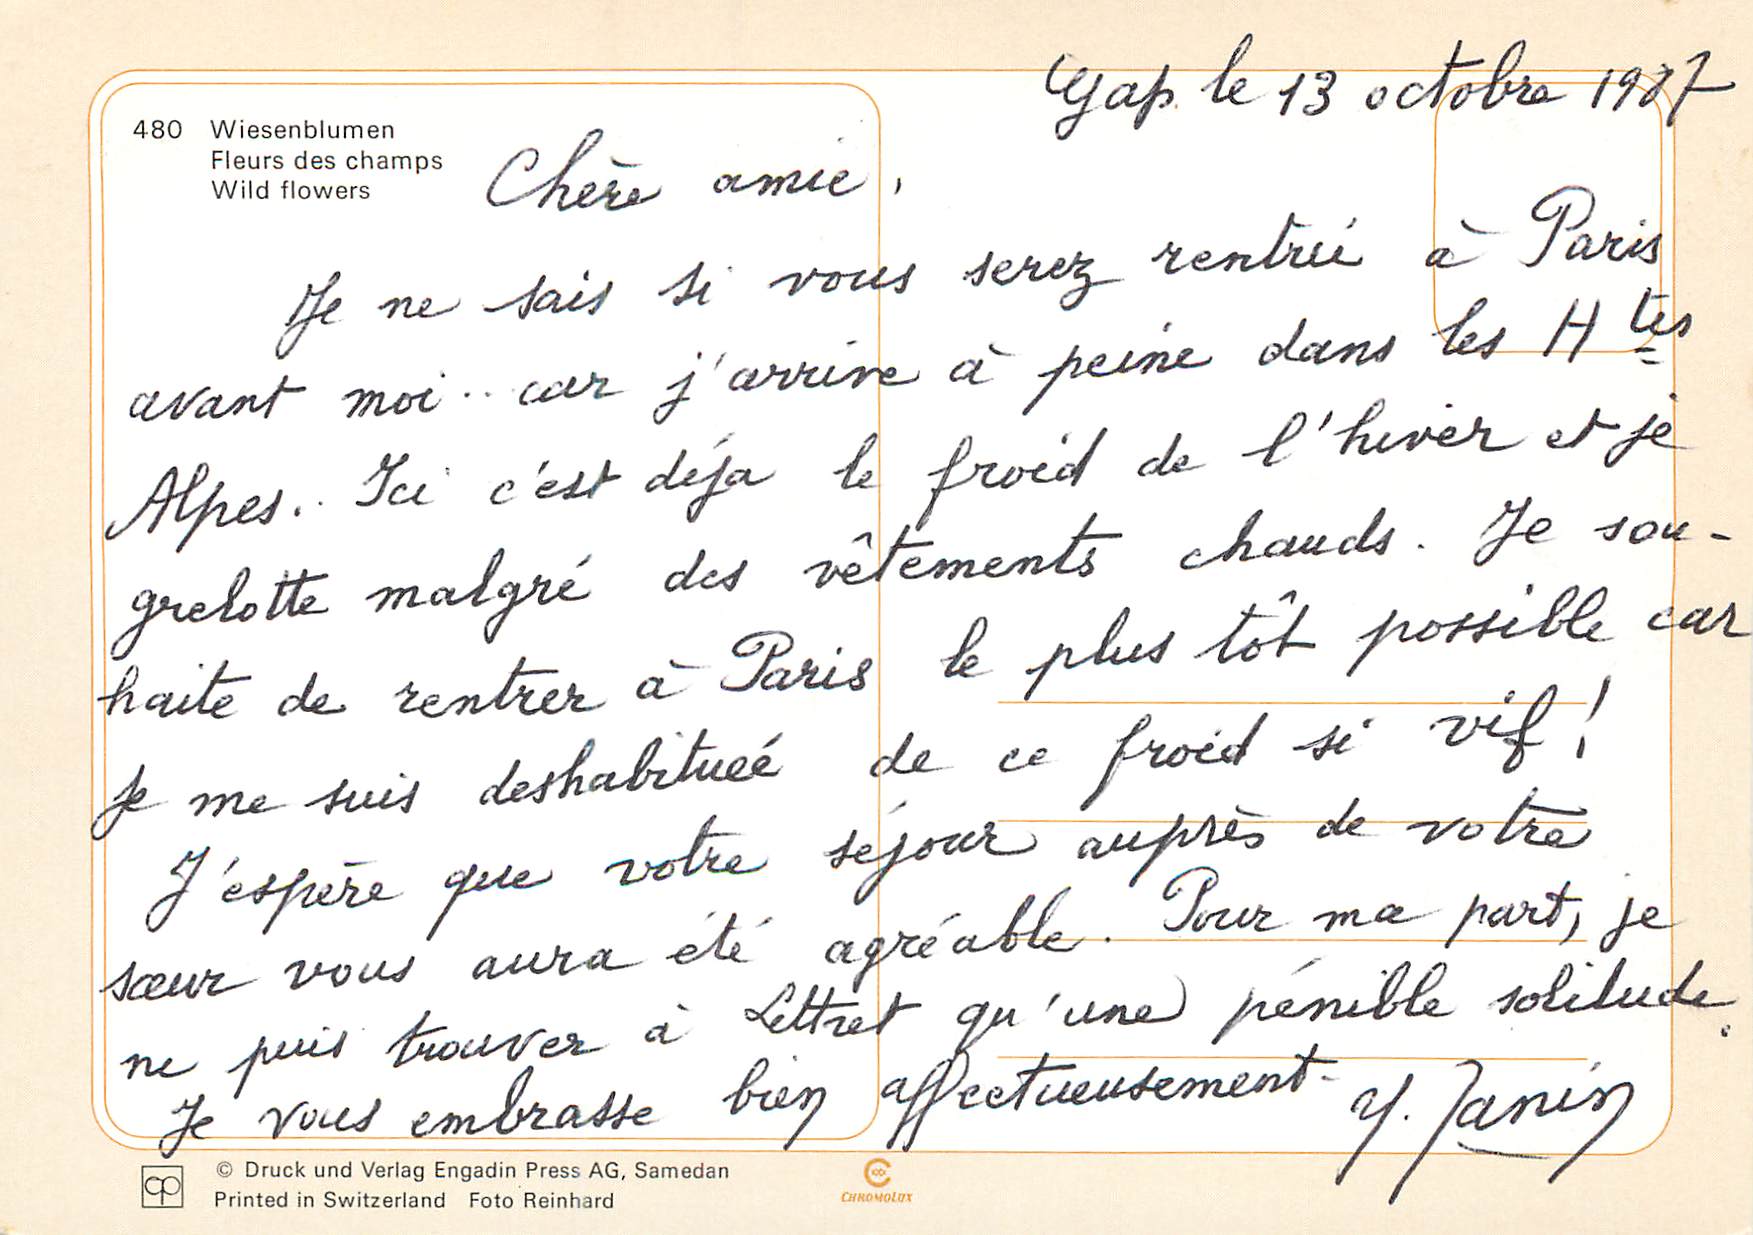 Gap le 13 octobre 1987
480 Wiesenblumen
Fleurs des champs
Wild flowers
Chère amie,
Je ne sais si vous serez rentrée à Paris
avant moi.. car j'arrive à peine dans les Htes
Alpes.. Ici c'est déja le froid de l'hiver et je
grelotte malgré des vêtements chauds. Je sou-
haite de rentrer à Paris le plus tôt possible car
je me suis deshabituée de ce froid si vif !
J'espère que votre séjour auprès de votre
sœur vous aura été agréable. Pour ma part, je
ne puis trouver à Lettret qu'une pénible solitude.
Je vous embrasse bien affectueusement- Y. Janin
cp
© Druck und Verlag Engadin Press AG, Samedan
Printed in Switzerland Foto Reinhard
CHROMOLUX